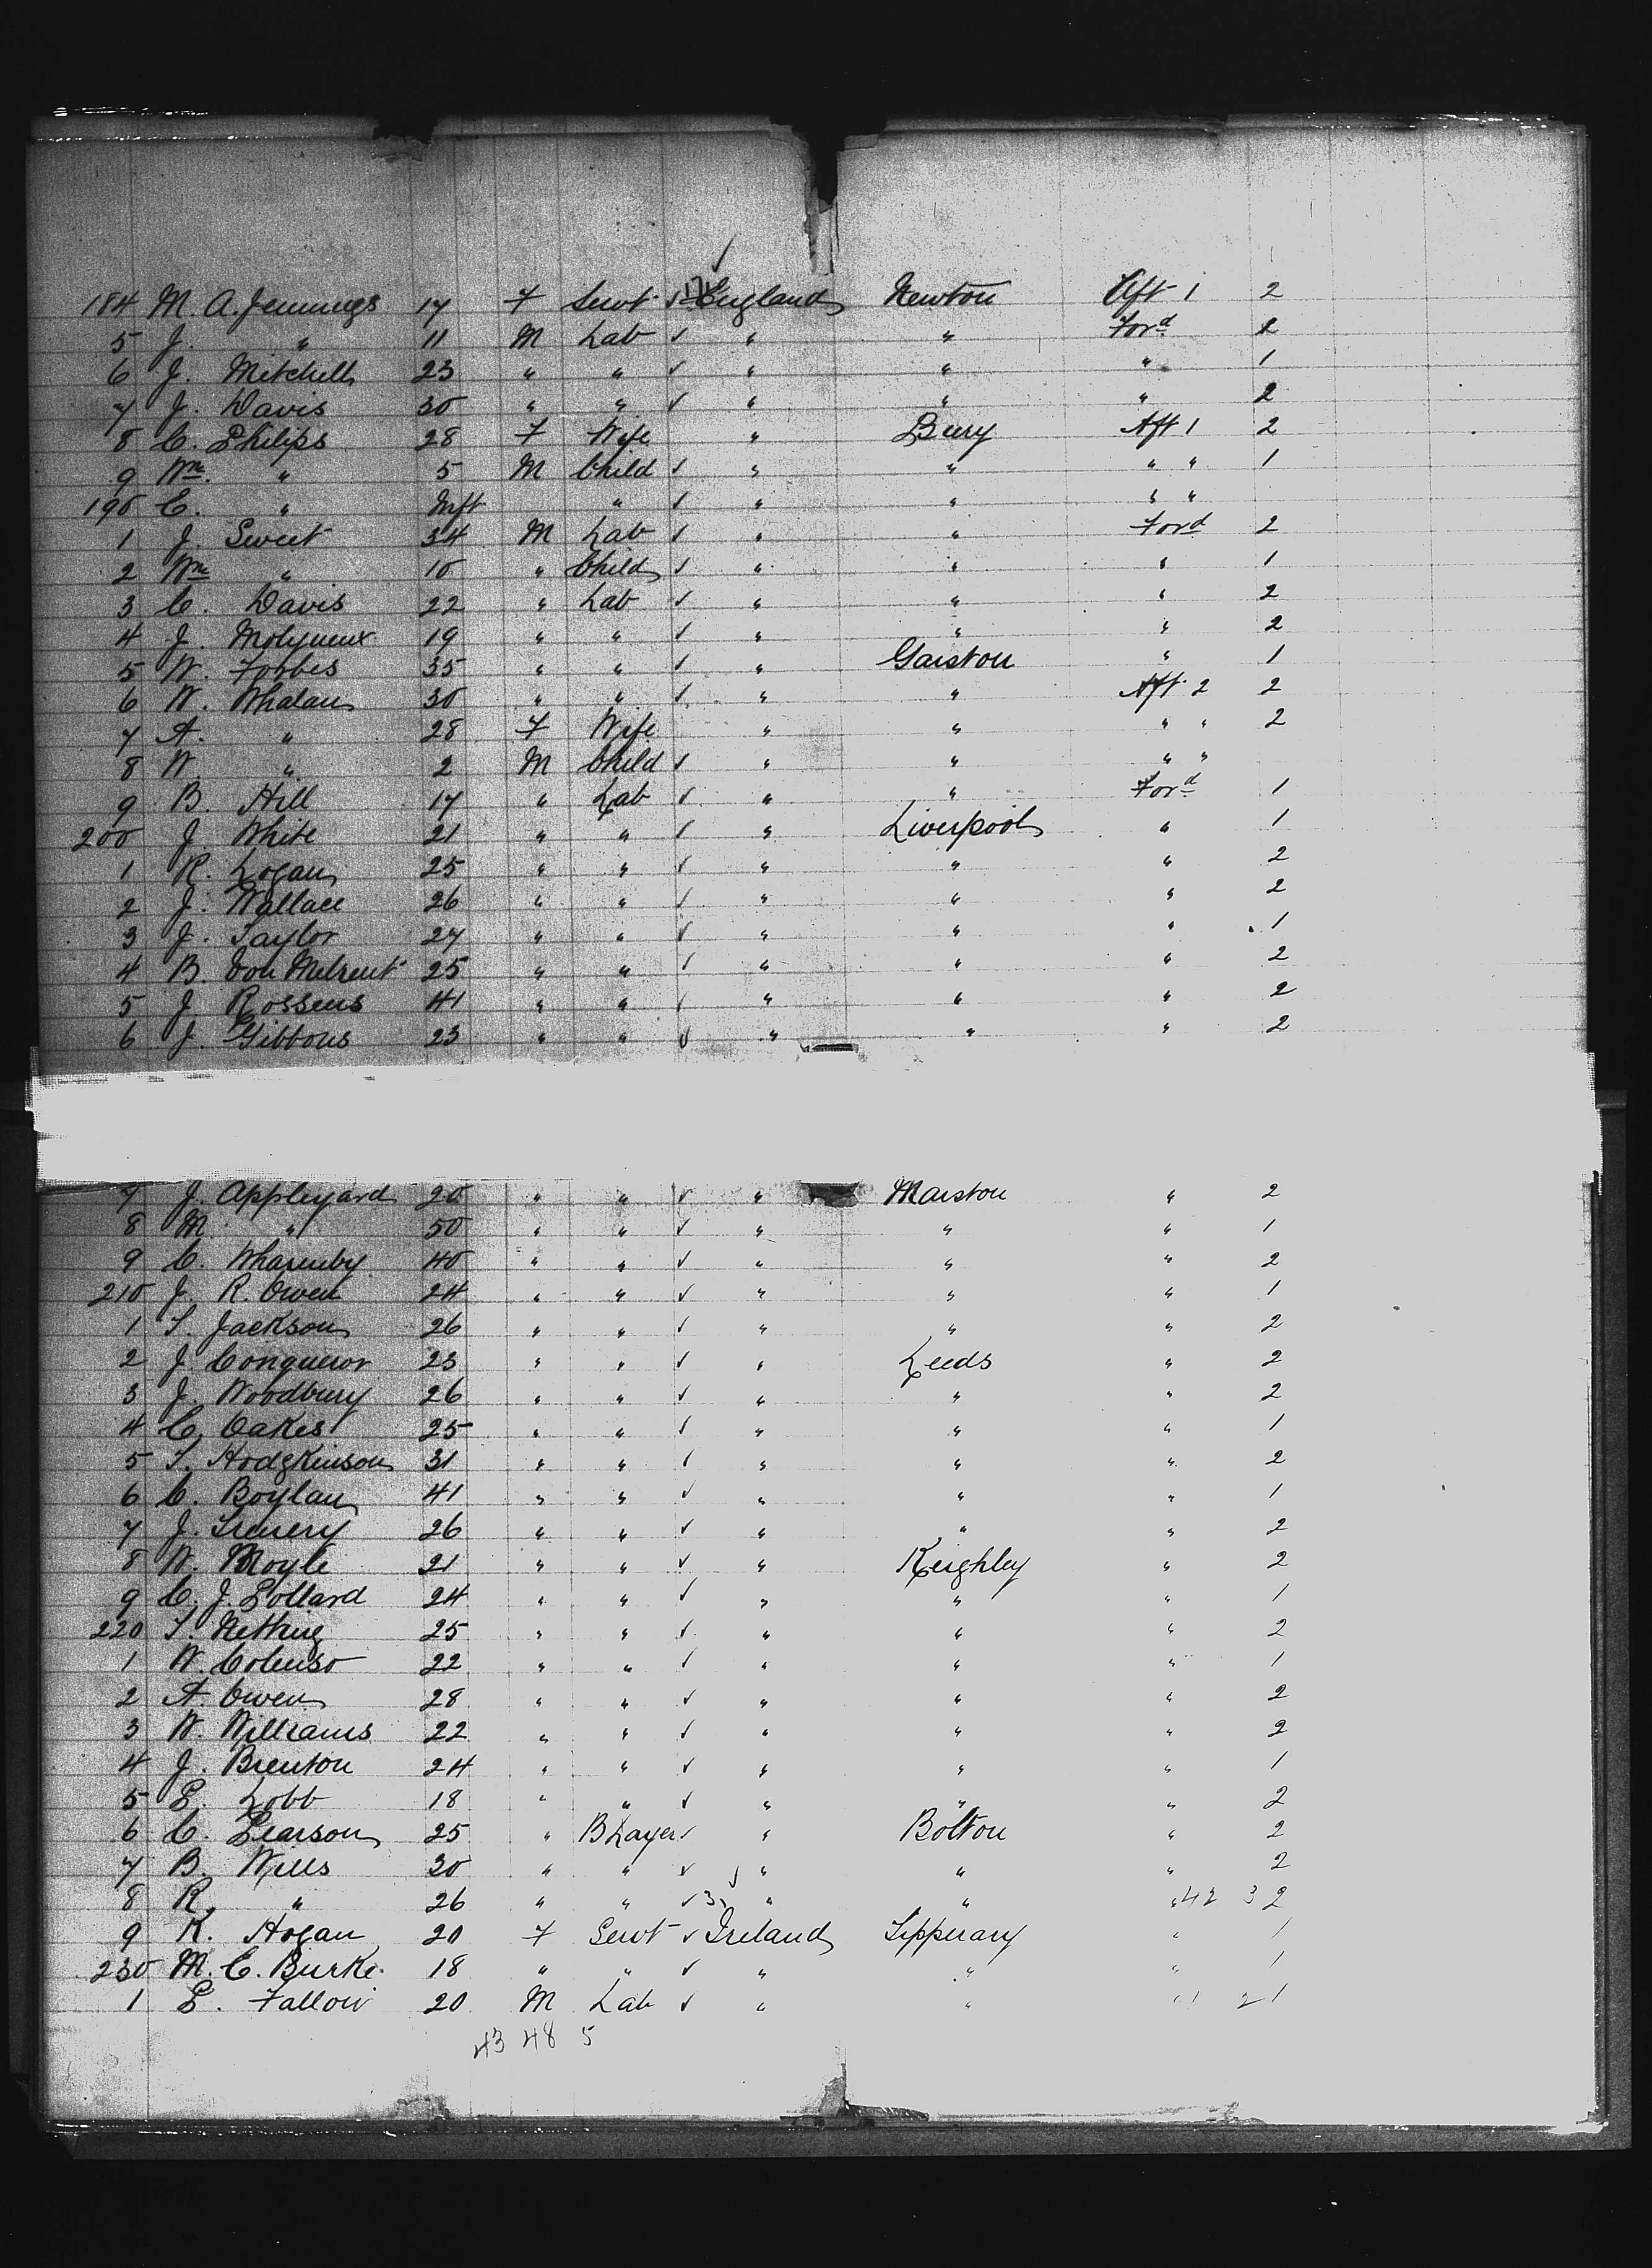 184 M. A. Jennings 17 F Servt ✓ England Newton Aft 1 2
5 J. " 11 M Lab ✓ " " Ford 2
6 J. Mitchell 23 " " ✓ " " " 1
7 J. Davis 30 " " ✓ " " " 2
8 C. Philips 28 F Wife " Bury Aft 1 2
9 Wm. " 5 M Child ✓ " " " " 1
190 C. " Inft " ✓ " " " "
1 J. Sweet 34 M Lab ✓ " " Ford 2
2 Wm " 10 " Child ✓ " " " 1
3 C. Davis 22 " Lab ✓ " " " 2
4 J. Molyneux 19 " " ✓ " " " 2
5 W. Forbes 35 " " ✓ " Garston " 1
6 W. Whalan 30 " " ✓ " " Aft 2 2
7 A. " 28 F Wife " " " " 2
8 W. " 2 M Child ✓ " " " "
9 B. Hill 17 " Lab ✓ " " Ford 1
200 J. White 21 " " ✓ " Liverpool " 1
1 R. Logan 25 " " ✓ " " " 2
2 J. Wallace 26 " " ✓ " " " 2
3 J. Taylor 27 " " ✓ " " " 1
4 B. Von 25 " " ✓ " " " 2
5 J. Rossens 41 " " ✓ " " " 2
6 J. Gibbons 23 " " ✓ " " " 2
7 J. Appleyard 20 " " ✓ " Marston " 2
8 M. " 50 " " ✓ " " " 1
9 C. Wharmby 40 " " ✓ " " " 2
210 J. R. Owen 24 " " ✓ " " " 1
1 T. Jackson 26 " " ✓ " " " 2
2 J. Conqueror 23 " " ✓ " Leeds " 2
3 J. Woodbury 26 " " ✓ " " " 2
4 C. Oakes 25 " " ✓ " " " 1
5 T. Hodgkinson 31 " " ✓ " " " 2
6 C. Boylan 41 " " ✓ " " " 1
7 J. 26 " " ✓ " " " 2
8 W. Moyle 21 " " ✓ " Keighley " 2
9 C. J. Pollard 24 " " ✓ " " " 1
220 T. 25 " " ✓ " " " 2
1 W. Colenso 22 " " ✓ " " " 1
2 A. Owen 28 " " ✓ " " " 2
3 W. Williams 22 " " ✓ " " " 2
4 J. Brenton 24 " " ✓ " " " 1
5 P. Lobb 18 " " ✓ " " " 2
6 C. Pearson 25 " BLayer ✓ " Bolton " 2
7 B. Wills 30 " " ✓ " " " 2
8 R. " 26 " " ✓ 3 " " " 42 3 2
9 K. Hogan 20 F Servt ✓ Ireland Tipperary " 1
230 M. C. Burke 18 " " ✓ " " " 1
1 P. Fallow 20 M Lab ✓ " " " 1 2 1
43 48 5